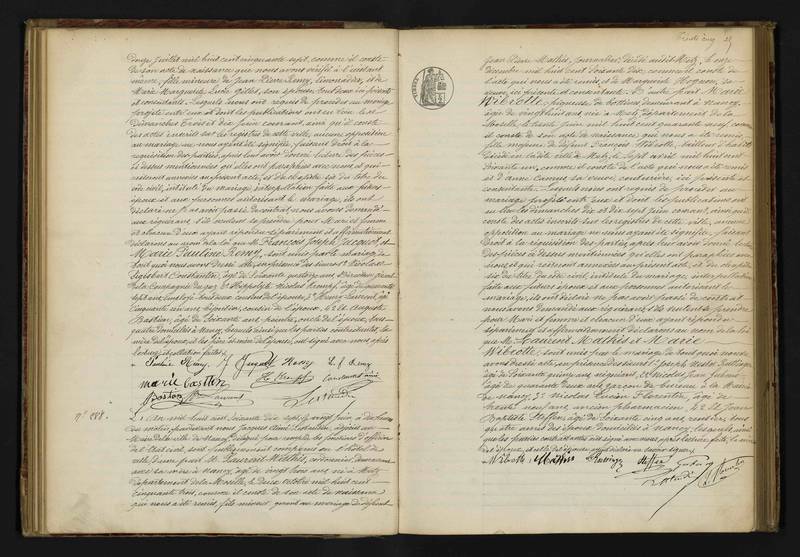 Douze juillet mil huit cent cinquante sept, comme il conste
de son acte de naissance que nous avons vérifié à l'instant
même, fille mineure de Jean Pierre Remy, limonadier, et de
Marie Marguerite Lucie Gillet, son épouse, tous deux ici présents
et consentants. Lesquels nous ont requis de procéder au mariage
projeté entre eux et dont les publications ont eu lieu les
Dimanches trois et dix juin courant, ainsi qu'il conste
des actes inscrits sur les registres de cette ville, aucune opposition
au mariage ne nous ayant été signifiée, faisant droit à la
réquisition des parties, après leur avoir donné lecture des pièces
ci dessus mentionnées qu'elles ont paraphées avec nous et qui
resteront annexées au présent acte, et du chapitre six du titre du
code civil, intitulé Du mariage, interpellation faite aux futurs
époux et aux personnes autorisant le mariage, ils ont
déclaré ne pas avoir passé de contrat, nous avons demandé
aux requérants, s'ils veulent se prendre pour Mari et femme
et chacun d'eux ayant répondu séparément et affirmativement
déclarons au nom de la loi que François Joseph Jacquot, et
Marie Pauline Remy, sont unis par le mariage. de
tout quoi nous avons dressé acte en présence des sieurs 1° Nicolas
Sigisbert Constantin, âgé de soixante quatorze ans, Directeur gérant
de la Compagnie du gaz, 2° Hippolyte Nicolas
sept ans, employé, tous deux cousins de l'épouse, 3° Henry Laurent, âgé
cinquante six ans, bijoutier, cousin de l'époux, & 4° Auguste
Bastien, âgé de soixante ans, peintre, oncle de l'époux, tous
quatre domiciliés à Nancy, lesquels ainsi que les parties contractantes, la
mère de l'époux, et les père et mère de l'épouse, ont signé avec nous après
lecture et collation faites.
Pauline Remy Jacquot Remy L. J. Remy
marie Bastien Constantin ainé
Baston Laurent
N° 288.
L'an mil huit cent soixante dix sept, le vingt juin, à dix heures
du matin pardevant nous Jacques Aimé, adjoint au
Maire de la ville de Nancy, délégué pour remplir les fonctions d'officier
de l'état civil, sont publiquement comparus en l'hôtel de
ville, d'une part Mr Laurent Mathis, cordonnier, demeurant
avec sa mère à Nancy, âgé de vingt trois ans, né à Metz
département de la Moselle, le deux octobre mil huit cent
cinquante trois, comme il conste de son acte de naissance
que nous a été remis, fils mineur, quant au mariage de défunt
Jean Pierre Mathis, journalier, décédé audit Metz, le onze
décembre mil huit cent soixante dix, comme il conste de
l'acte qui nous a été remis, et de Marguerite sa
veuve, ici présente et consentante. Et d'autre part Marie
Wibrotte, piqueuse de bottines, demeurant à Nancy,
âgée de vingt huit ans, née à Metz, département de la
Moselle, le trente juin mil huit cent quarante neuf, comme
il conste de son acte de naissance qui nous a été remis,
fille majeure de défunt François Wibrotte, tailleur d'habits
décédé en ladite ville de Metz, le sept avril mil huit cent
soixante un, comme il conste de l'acte qui nous a été remis
et d'Anne sa veuve, couturière, ici présente et
consentante. Lesquels nous ont requis de procéder au
mariage projeté entre eux et dont les publications ont
eu lieu les dimanches dix et dix sept juin courant, ainsi qu'il
conste des actes inscrits sur les registres de cette ville, aucune
opposition au mariage ne nous ayant été signifiée, faisant
droit à la réquisition des parties, après leur avoir donné lecture
des pièces ci dessus mentionnées qu'elles ont paraphées avec
nous, et qui resteront annexées au présent acte, et du chapitre
six du titre du code civil, intitulé du mariage, interpellation
faite aux futurs époux et aux personnes autorisant le
mariage, ils ont déclaré ne pas avoir passé de contrat,
nous avons demandé aux requérants s'ils veulent se prendre
pour Mari et femme et chacun d'eux ayant répondu
séparément et affirmativement déclarons au nom de la loi
que Mr Laurent Mathis et Marie
Wibrotte, sont unis par le mariage. de tout quoi nous
avons dressé acte, en présence des sieurs 1° Joseph
âgé de soixante quinze ans, rentier, 2° Nicolas Jean
âgé de quarante deux ans, garçon de bureau à la Mairie
de Nancy, 3° Nicolas Lucien Florentin, âgé de
trente neuf ans, ancien pharmacien, & 4° Jean
Baptiste Steffen, âgé de soixante cinq ans, tous
quatre amis des époux, domiciliés à Nancy, lesquels ainsi
que les parties contractantes ont signé avec nous après lecture faite, la mère
de l'époux, et celle de l'épouse ayant déclaré ne savoir signer.
Wibrotte Mathis Steffen